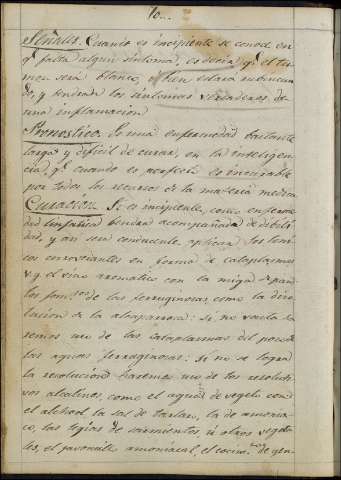 10...
Señales. Cuando es incipiente se conoce en
qe falta algun sintoma, es decir, qe el tu-
mor será blanco, o bien estará rubicun-
do, y tendrá los sintomas verdaderos de
una inflamacion
Pronostico. Es una enfermedad bastante
larga y dificil de curar, en la inteligen-
cia, qe cuando es perfecto es incurable
por todos los recursos de la materia medica
Curacion. Si es incipiente, como enferme-
dad linfatica tendrá acompañada de debili-
dad, y asi será conducente aplicar los toni-
cos corroborantes en forma de cataplasmas
v.g. el vino aromatico con la miga de pan
los foms.os de las ferruginosas, como la diso-
lucion de la alcaparrosa: si no vasta ha-
remos uso de las cataplasmas del poso de
las aguas ferruginosas: si no se logra
la resolucion haremos uso de los resoluti-
vos alcalinos, como el agua de vegeto con
el alcohol la sal de tartaro, la de amonia-
co, las legias de sarmientos, u otros vegeta-
les, el javoncillo amoniacal, el cocim.to de